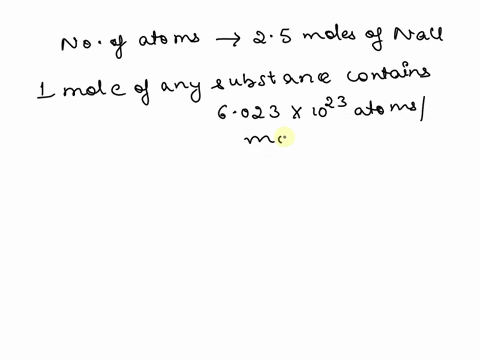 No. of atoms → 2.5 moles of NaCl
1 mole of any substance contains
6.023 × 10²³ atoms/
mo